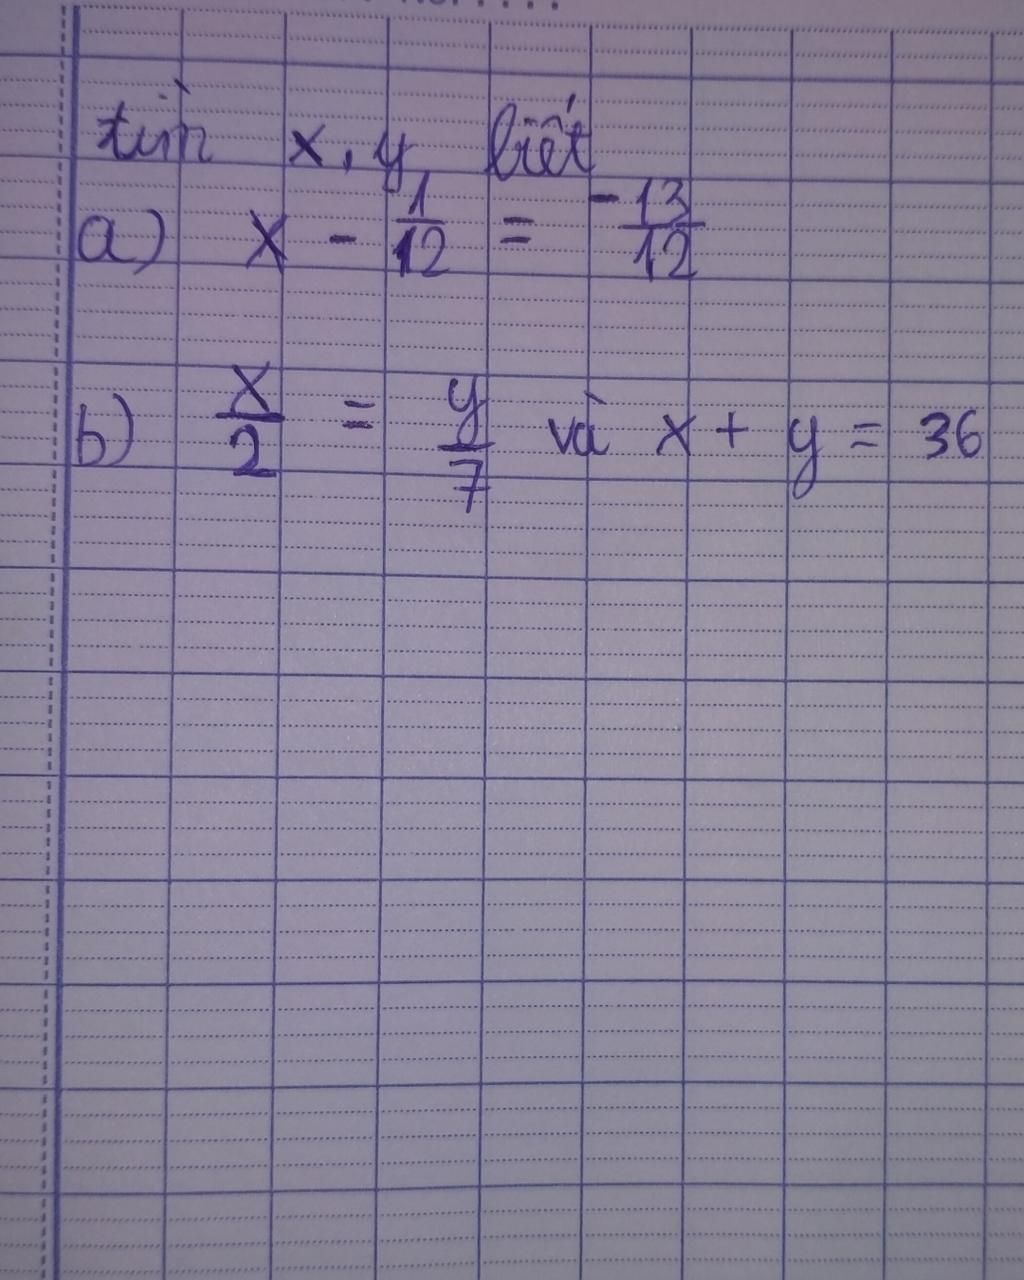 tìm x, y biết
a) x - 1/12 = -13/12
b) x/2 = y/7 và x + y = 36